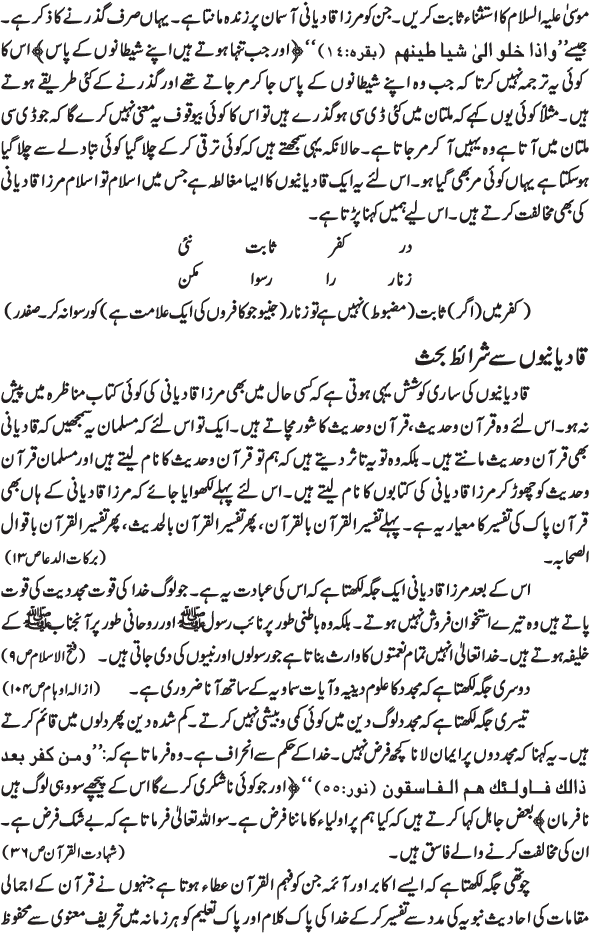 موسیٰ علیہ السلام کا استثناء ثابت کریں۔ جن کو مرزا قادیانی آسمان پر زندہ مانتا ہے۔ یہاں صرف گذرنے کا ذکر ہے۔
جیسے ’’واذا خلو الیٰ شیاطینہم (بقرہ:۱۴)‘‘ ﴿اور جب تنہا ہوتے ہیں اپنے شیطانوں کے پاس﴾ اس کا
کوئی یہ ترجمہ نہیں کرتا کہ جب وہ اپنے شیطانوں کے پاس جا کر مر جاتے تھے اور گذرنے کے کئی طریقے ہوتے
ہیں۔ مثلاً کوئی یوں کہے کہ ملتان میں کئی ڈی سی ہو گذرے ہیں تو اس کا کوئی بیوقوف یہ معنی نہیں کرے گا کہ جو ڈی سی
ملتان میں آتا ہے وہ یہیں آ کر مر جاتا ہے۔ حالانکہ یہی سمجھتے ہیں کہ کوئی ترقی کر کے چلا گیا کوئی تبادلے سے چلا گیا
ہو سکتا ہے یہاں کوئی مر بھی گیا ہو۔ اس لئے یہ ایک قادیانیوں کا ایسا مغالطہ ہے جس میں اسلام تو اسلام مرزا قادیانی
کی بھی مخالفت کرتے ہیں۔ اس لیے ہمیں کہنا پڑتا ہے۔
در کفر ثابت نئی
زنار را رسوا مکن
(کفر میں (اگر) ثابت (مضبوط) نہیں ہے تو زنار (جنیو جو کافروں کی ایک علامت ہے) کو رسوا نہ کر۔ صفدر)
قادیانیوں سے شرائط بحث
قادیانیوں کی ساری کوشش یہی ہوتی ہے کہ کسی حال میں بھی مرزا قادیانی کی کوئی کتاب مناظرہ میں پیش
نہ ہو۔ اس لئے وہ قرآن وحدیث، قرآن وحدیث کا شور مچاتے ہیں۔ ایک تو اس لئے کہ مسلمان یہ سمجھیں کہ قادیانی
بھی قرآن وحدیث مانتے ہیں۔ بلکہ وہ تو یہ تاثر دیتے ہیں کہ ہم تو قرآن وحدیث کا نام لیتے ہیں اور مسلمان قرآن
وحدیث کو چھوڑ کر مرزا قادیانی کی کتابوں کا نام لیتے ہیں۔ اس لئے پہلے لکھوایا جائے کہ مرزا قادیانی کے ہاں بھی
قرآن پاک کی تفسیر کا معیار یہ ہے۔ پہلے تفسیر القرآن بالقرآن، پھر تفسیر القرآن بالحدیث، پھر تفسیر القرآن باقوال
الصحابہ۔ (برکات الدعا ص۱۳)
اس کے بعد مرزا قادیانی ایک جگہ لکھتا ہے کہ اس کی عبادت یہ ہے۔ جو لوگ خدا کی قوت مجددیت کی قوت
پاتے ہیں وہ تیرے استخوان فروش نہیں ہوتے۔ بلکہ وہ باطنی طور پر نائب رسول ﷺ اور روحانی طور پر آنجناب ﷺ کے
خلیفہ ہوتے ہیں۔ خدا تعالیٰ انہیں تمام نعمتوں کا وارث بناتا ہے جو رسولوں اور نبیوں کی دی جاتی ہیں۔ (فتح الاسلام ص۹)
دوسری جگہ لکھتا ہے کہ مجدد کا علوم دینیہ و آیات سماویہ کے ساتھ آنا ضروری ہے۔ (ازالہ اوہام ص۱۰۴)
تیسری جگہ لکھتا ہے کہ مجدد لوگ دین میں کوئی کمی و بیشی نہیں کرتے۔ گم شدہ دین پھر دلوں میں قائم کرتے
ہیں۔ یہ کہنا کہ مجددوں پر ایمان لانا کچھ فرض نہیں۔ خدا کے حکم سے انحراف ہے۔ وہ فرماتا ہے کہ: ’’ومن کفر بعد
ذالك فاولئك هم الفاسقون (نور:۵۵)‘‘ ﴿اور جو کوئی ناشکری کرے گا اس کے پیچھے سو وہی لوگ ہیں
نافرمان﴾ بعض جاہل کہا کرتے ہیں کہ کیا ہم پر اولیاء کا ماننا فرض ہے۔ سو اللہ تعالیٰ فرماتا ہے کہ بے شک فرض ہے۔
ان کی مخالفت کرنے والے فاسق ہیں۔ (شہادت القرآن ص۳۶)
چوتھی جگہ لکھتا ہے کہ ایسے اکابر اور آئمہ جن کو فہم القرآن عطاء ہوتا ہے جنہوں نے قرآن کے اجمالی
مقامات کی احادیث نبویہ کی مدد سے تفسیر کر کے خدا کی پاک کلام اور پاک تعلیم کو ہر زمانہ میں تحریف معنوی سے محفوظ